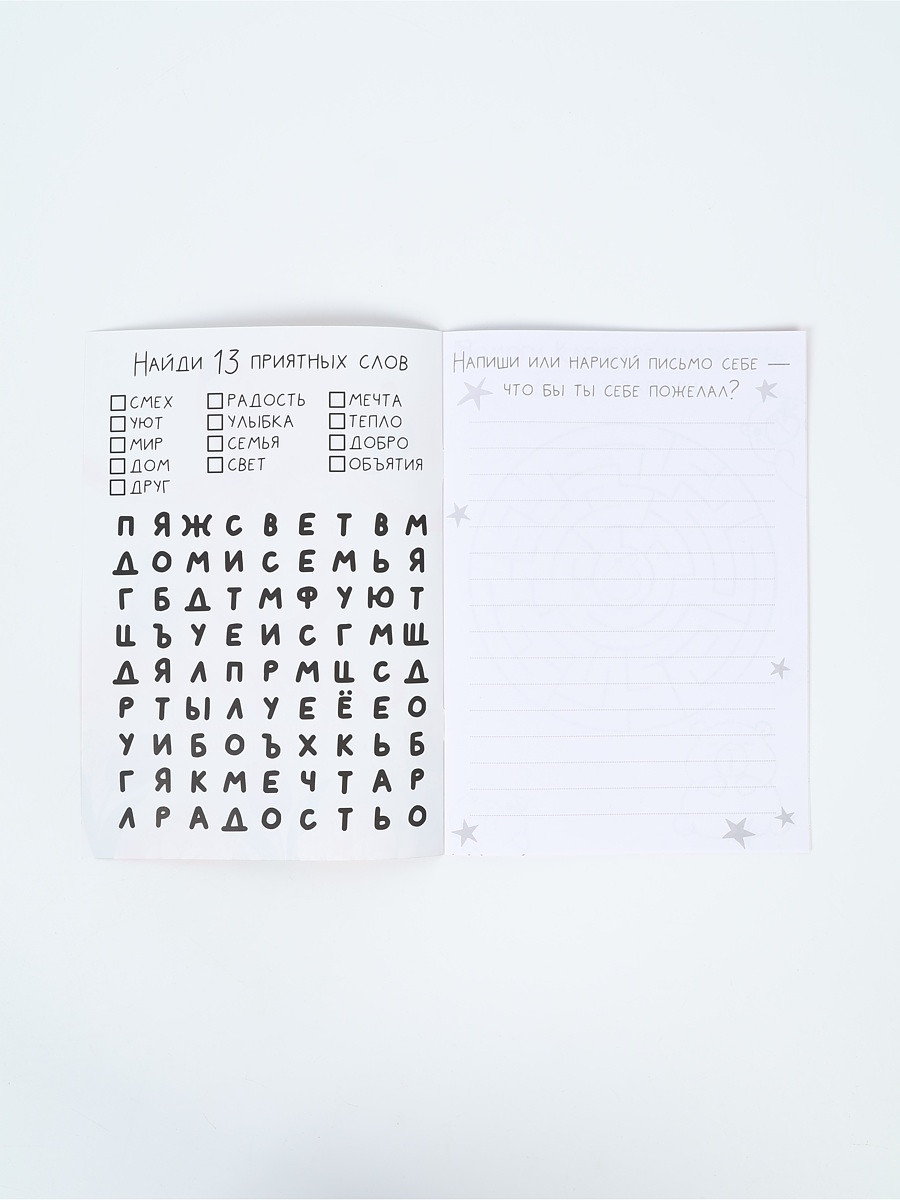 Найди 13 приятных слов
СМЕХ РАДОСТЬ МЕЧТА
УЮТ УЛЫБКА ТЕПЛО
МИР СЕМЬЯ ДОБРО
ДОМ СВЕТ ОБЪЯТИЯ
ДРУГ
П Я Ж С В Е Т В М
Д О М И С Е М Ь Я
Г Б Д Т М Ф У Ю Т
Ц Ъ У Е И С Г М Щ
Д Я Л П Р М Ц С Д
Р Т Ы Л У Е Ё Е О
У И Б О Ъ Х К Ь Б
Г Я К М Е Ч Т А Р
Л Р А Д О С Т Ь О
Напиши или нарисуй письмо себе —
что бы ты себе пожелал?